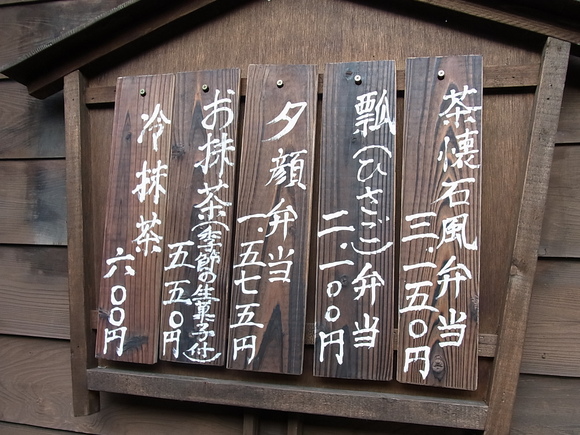 茶懐石風弁当
三.一五〇円
瓢(ひさご)弁当
二.一〇〇円
夕顔弁当
一.五七五円
お抹茶(季節の生菓子付)
五五〇円
冷抹茶
六〇〇円